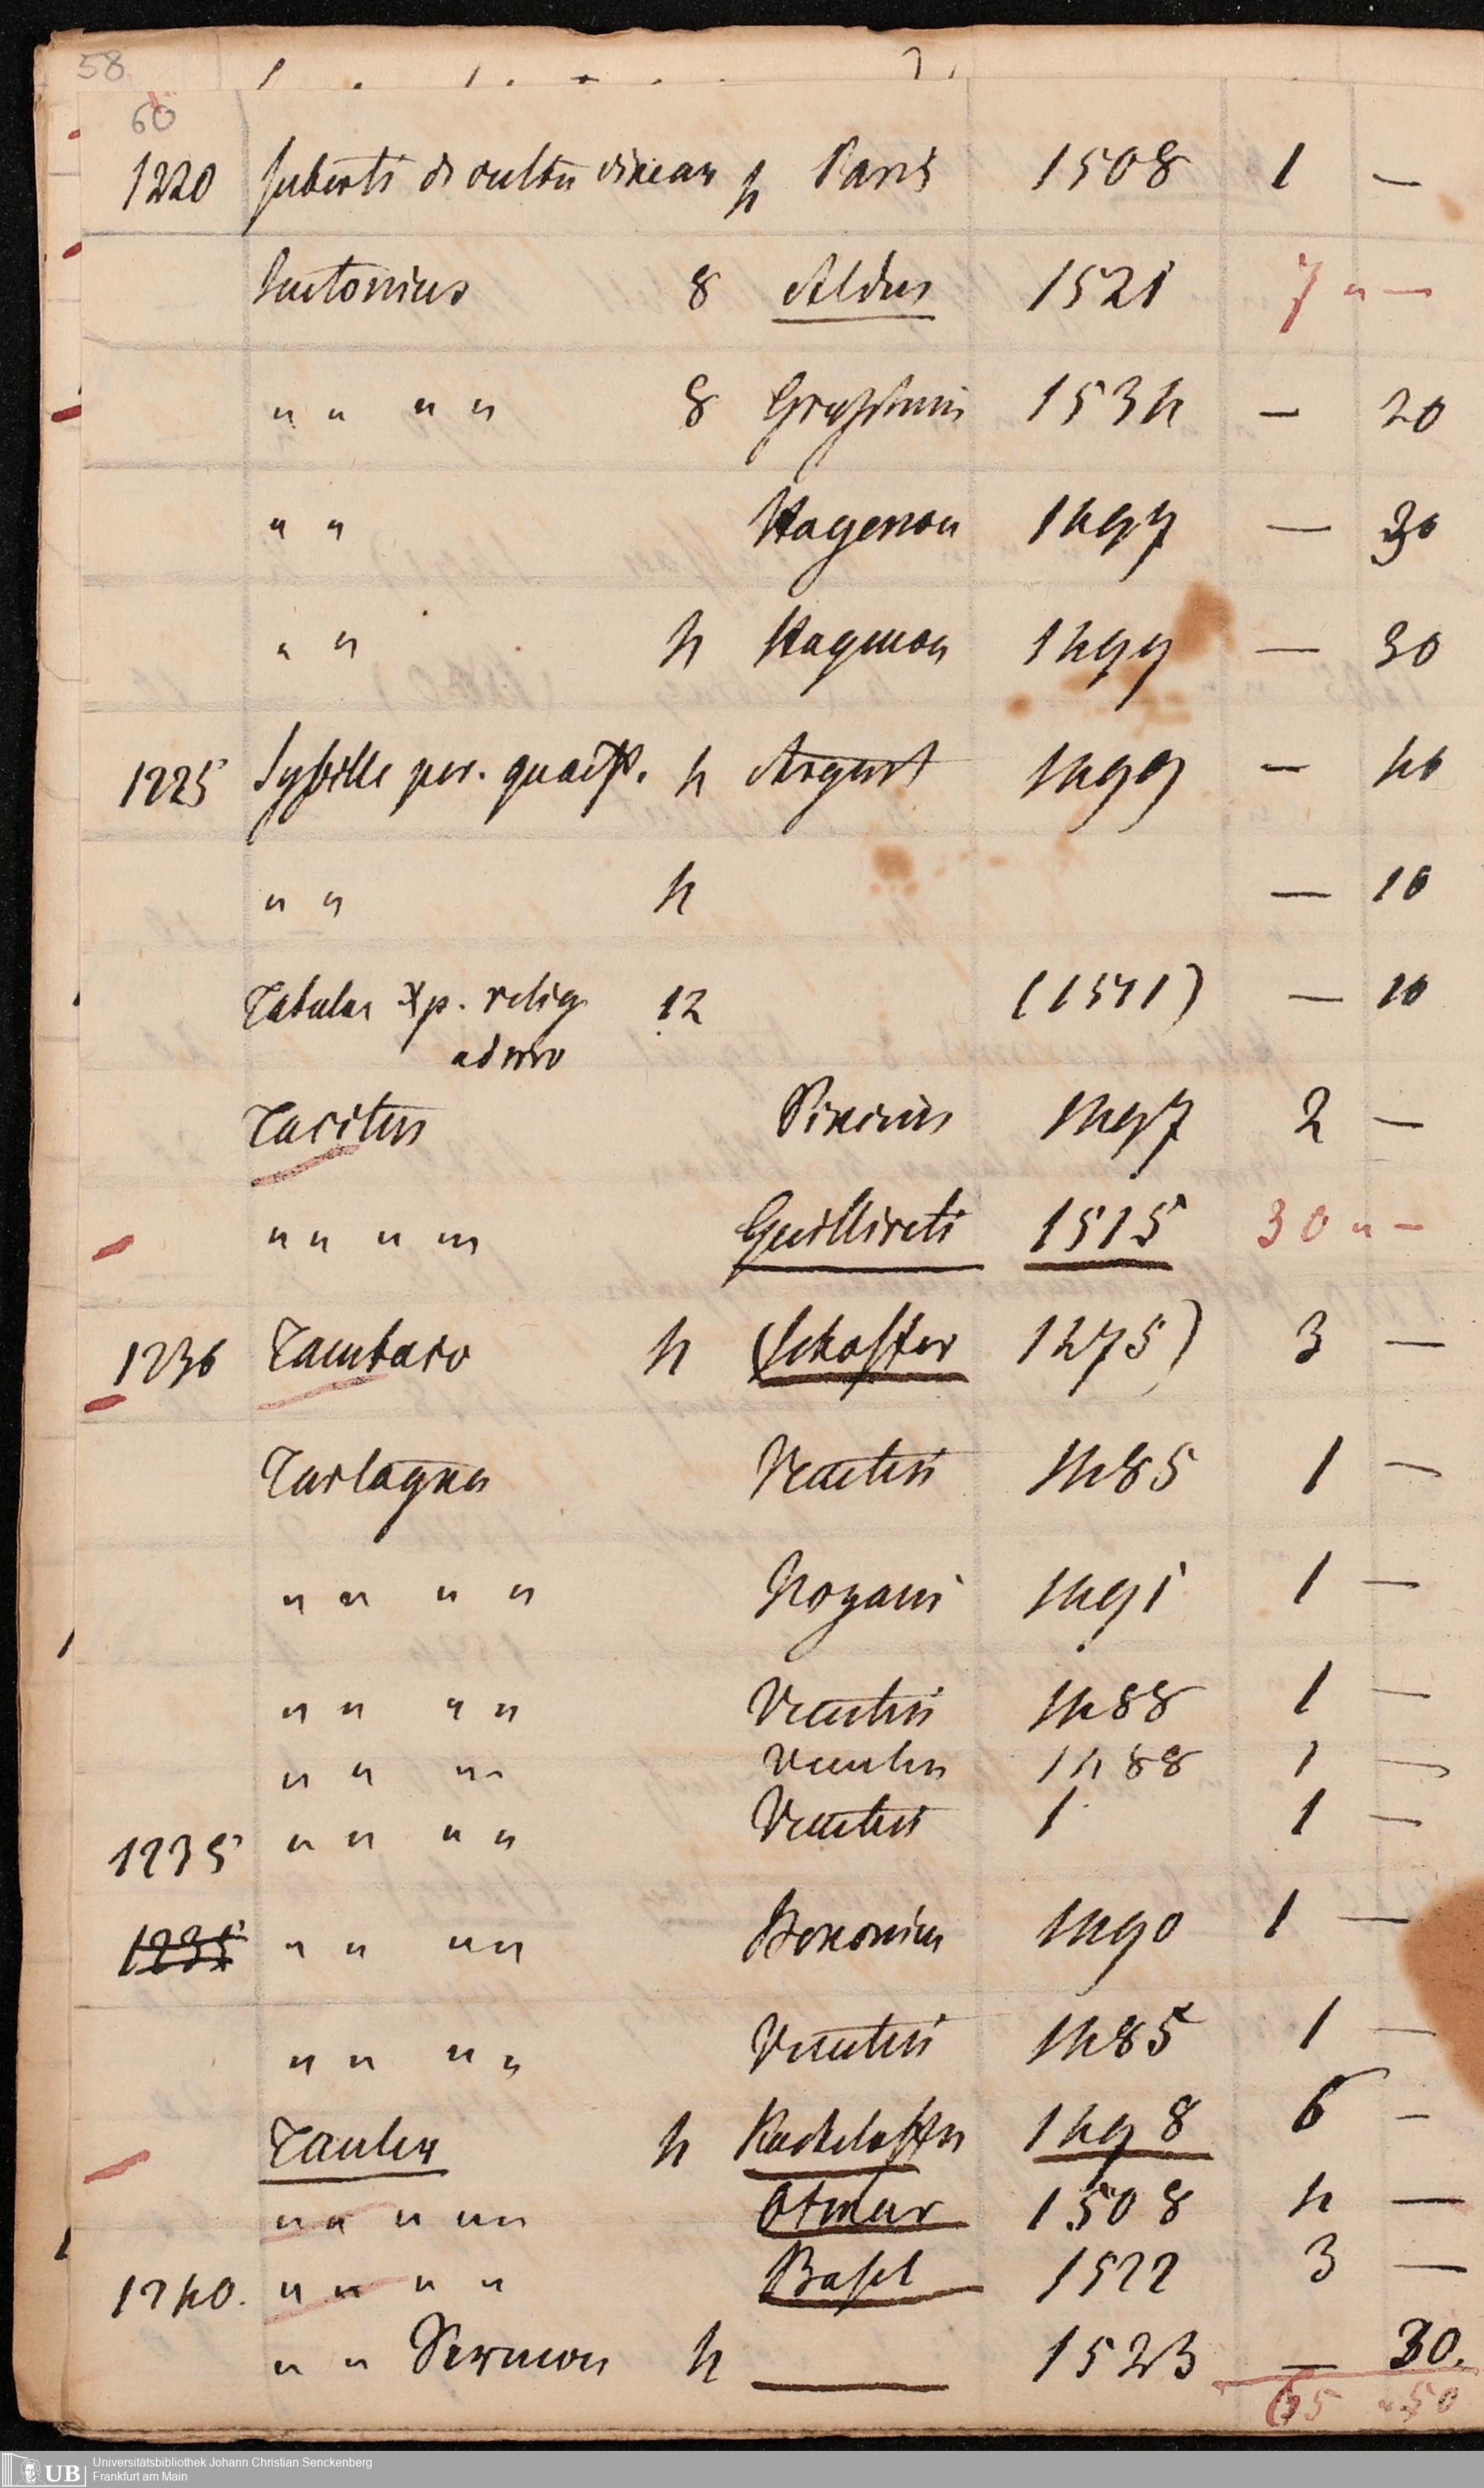 58
60
1220 Suberti de cultu vinear 4 Paris 1508 1 —
Suetonius 8 Aldus 1521 7 " —
" " " " 8 Gryphius 1534 — 20
" " Hagenou 1497 — 30
" " 4 Hagenou 1499 — 30
1225 Sybille per. quaest. 4 August 1499 — 40
" " 4 — 10
Tabulae Xp. relig 12 (1511) — 10
Tacitus Pincius 1497 2 —
" " " " Guillireti 1515 30 " —
1230 Tambaco 4 (Schoffer 1475) 3 —
Tartagna Venetiis 1485 1 —
" " " " 1491 1 —
" " " " Venetiis 1488 1 —
" " " " Venetiis 1488 1 —
1235 " " " " Venetiis 1 1 —
1235 " " " " Bononiae 1490 1 —
" " " " Venetiis 1485 1 —
Tauler 4 Kacheloffen 1498 6 —
" " " " Otmar 1508 4 —
1240. " " " " Basel 1522 3 —
" " Sermon 4 — 1523 — 30.
65 " 50
UB Universitätsbibliothek Johann Christian Senckenberg
Frankfurt am Main